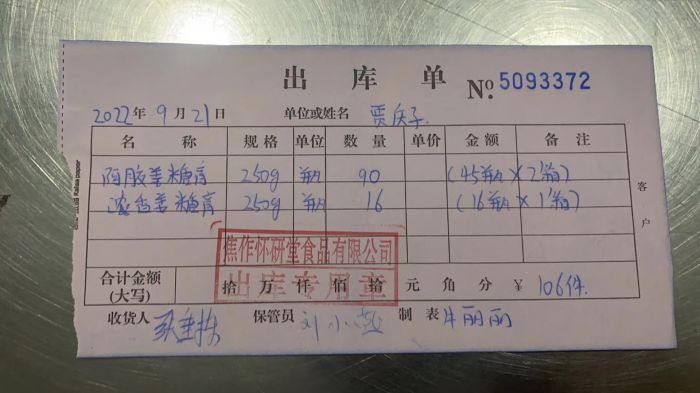 出库单 №.5093372
2022年9月21日 单位或姓名 贾庆子
名称 规格 单位 数量 单价 金额 备注
阿胶姜糖膏 250g 瓶 90 (45瓶×2箱)
浓香姜糖膏 250g 瓶 16 (16瓶×1箱)
客户
焦作怀研堂食品有限公司
出库专用章
合计金额(大写) 拾 万 仟 佰 拾 元 角 分 ¥ 106件.
收货人 保管员 刘小燕 制表 牛丽丽